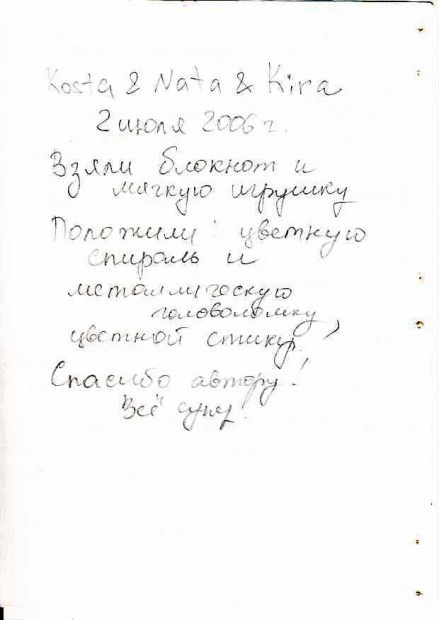 Kosta & Nata & Kira
2 июля 2006 г.
Взяли блокнот и
мягкую игрушку
Положили: цветную
спираль и
металлическую
головоломку,
цветной стикер.
Спасибо автору!
Всё супер!